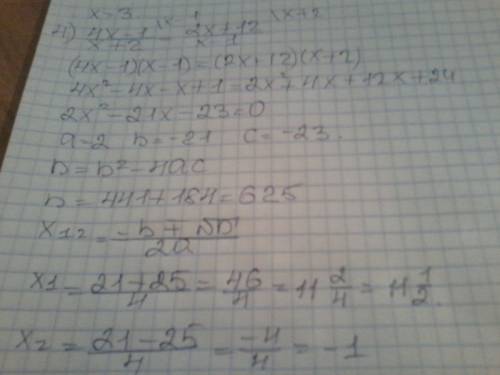 x=3 \x+2
4) 4x-1/x+2 = 2x+12/x-1
(4x-1)(x-1)=(2x+12)(x+2)
4x²-4x-x+1=2x²+4x+12x+24
2x²-21x-23=0
a=2 b=-21 c=-23.
D=b²-4ac
D=441+184=625
x₁₂=-b+√D/2a
x₁=21+25/4=46/4=11 2/4=11 1/2.
x₂=21-25/4=-4/4=-1